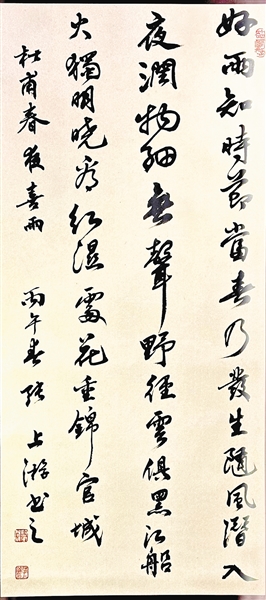 好雨知時節當春乃發生隨風潛入
夜潤物細無聲野徑雲俱黑江船
火獨明曉看紅濕處花重錦官城
杜甫春夜喜雨 丙午春張上游書之